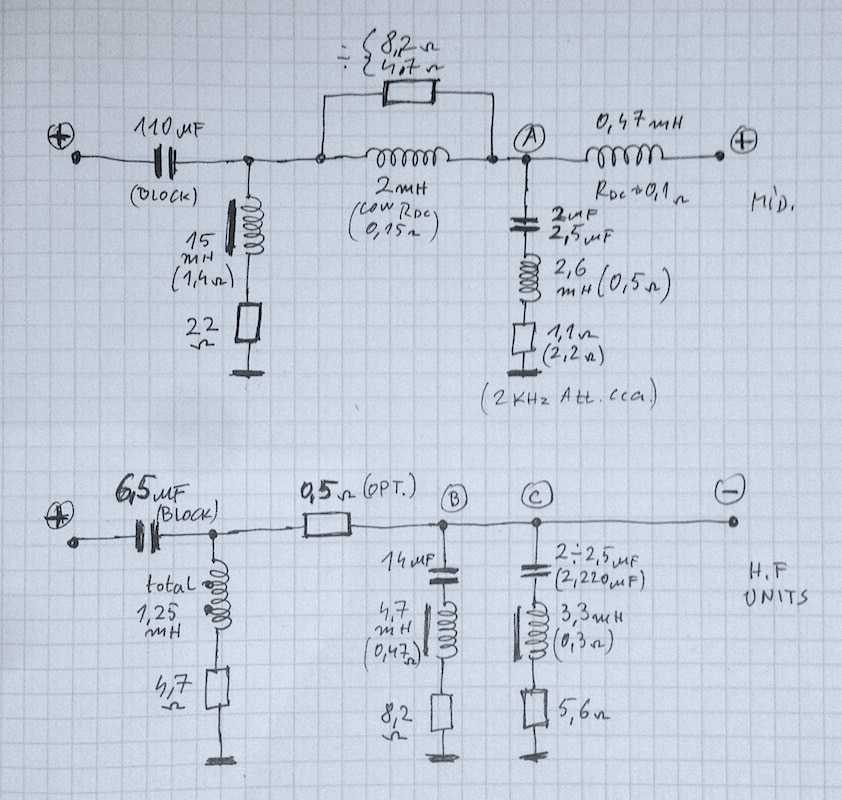 ÷ { 8,2 Ω
4,7 Ω
+
110 μF
(BLOCK)
A
0,47 mH
+
2 mH
(LOW RDC
0,15Ω)
RDC→0,1Ω
MID.
15
mH
(1,4Ω)
22
Ω
2 μF
2,5 μF
2,6
mH (0,5Ω)
1,1Ω
(2,2Ω)
(2 KHz Att. cca.)
+
6,5 μF
(BLOCK)
0,5Ω (OPT.)
B
C
−
total
1,25
mH
4,7
Ω
14 μF
4,7
mH
(0,47Ω)
8,2
Ω
2÷2,5 μF
(2,220 μF)
3,3 mH
(0,3Ω)
5,6Ω
H.F
UNITS